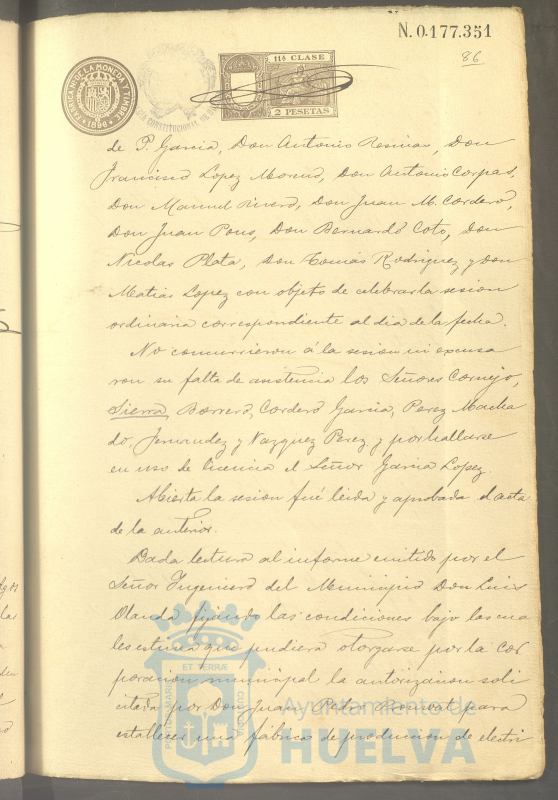 N. 0.177.351
86
FABRICA DE LA MONEDA Y TIMBRE
1896
CONSTITUCIONAL
11ª CLASE
2 PESETAS
de P. Garcia, Don Antonio Resinas, Don
Francisco Lopez Moreno, Don Antonio Corpas,
Don Manuel Rivero, Don Juan M. Cordero,
Don Juan Pons, Don Bernardo Coto, Don
Nicolas Plata, Don Tomás Rodriguez y Don
Matias Lopez con objeto de celebrar la sesion
ordinaria correspondiente al dia de la fecha.
No concurrieron á la sesion ni excusa
ron su falta de asistencia los Señores Cornejo,
Sierra, Borrero, Cordero Garcia, Perez Macha
do, Fernandez y Vazquez Perez, y por hallarse
en uso de licencia el Señor Garcia Lopez.
Abierta la sesion fué leida y aprobada el acta
de la anterior.
Dada lectura al informe emitido por el
Señor Ingeniero del Municipio Don Luis
Olanda fijando las condiciones bajo las cua
les estima que pudiera otorgarse por la Cor
poracion municipal la autorizacion soli
citada por Don Juan Pedro para
establecer una fábrica de produccion de electri
PORTUS MARIS ET TERRÆ CUSTODIA
Ayuntamiento de
HUELVA